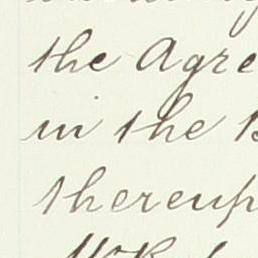 the Agre
in the
thereup